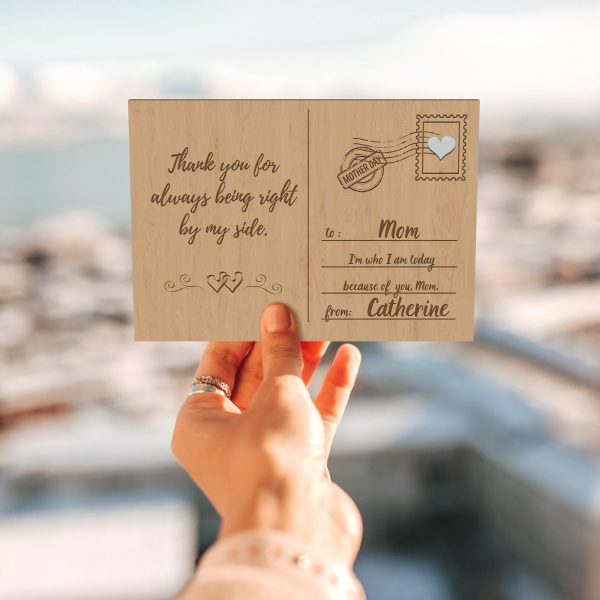 Thank you for
always being right
by my side.
MOTHER DAY
to : Mom
I'm who I am today
because of you, Mom.
from: Catherine